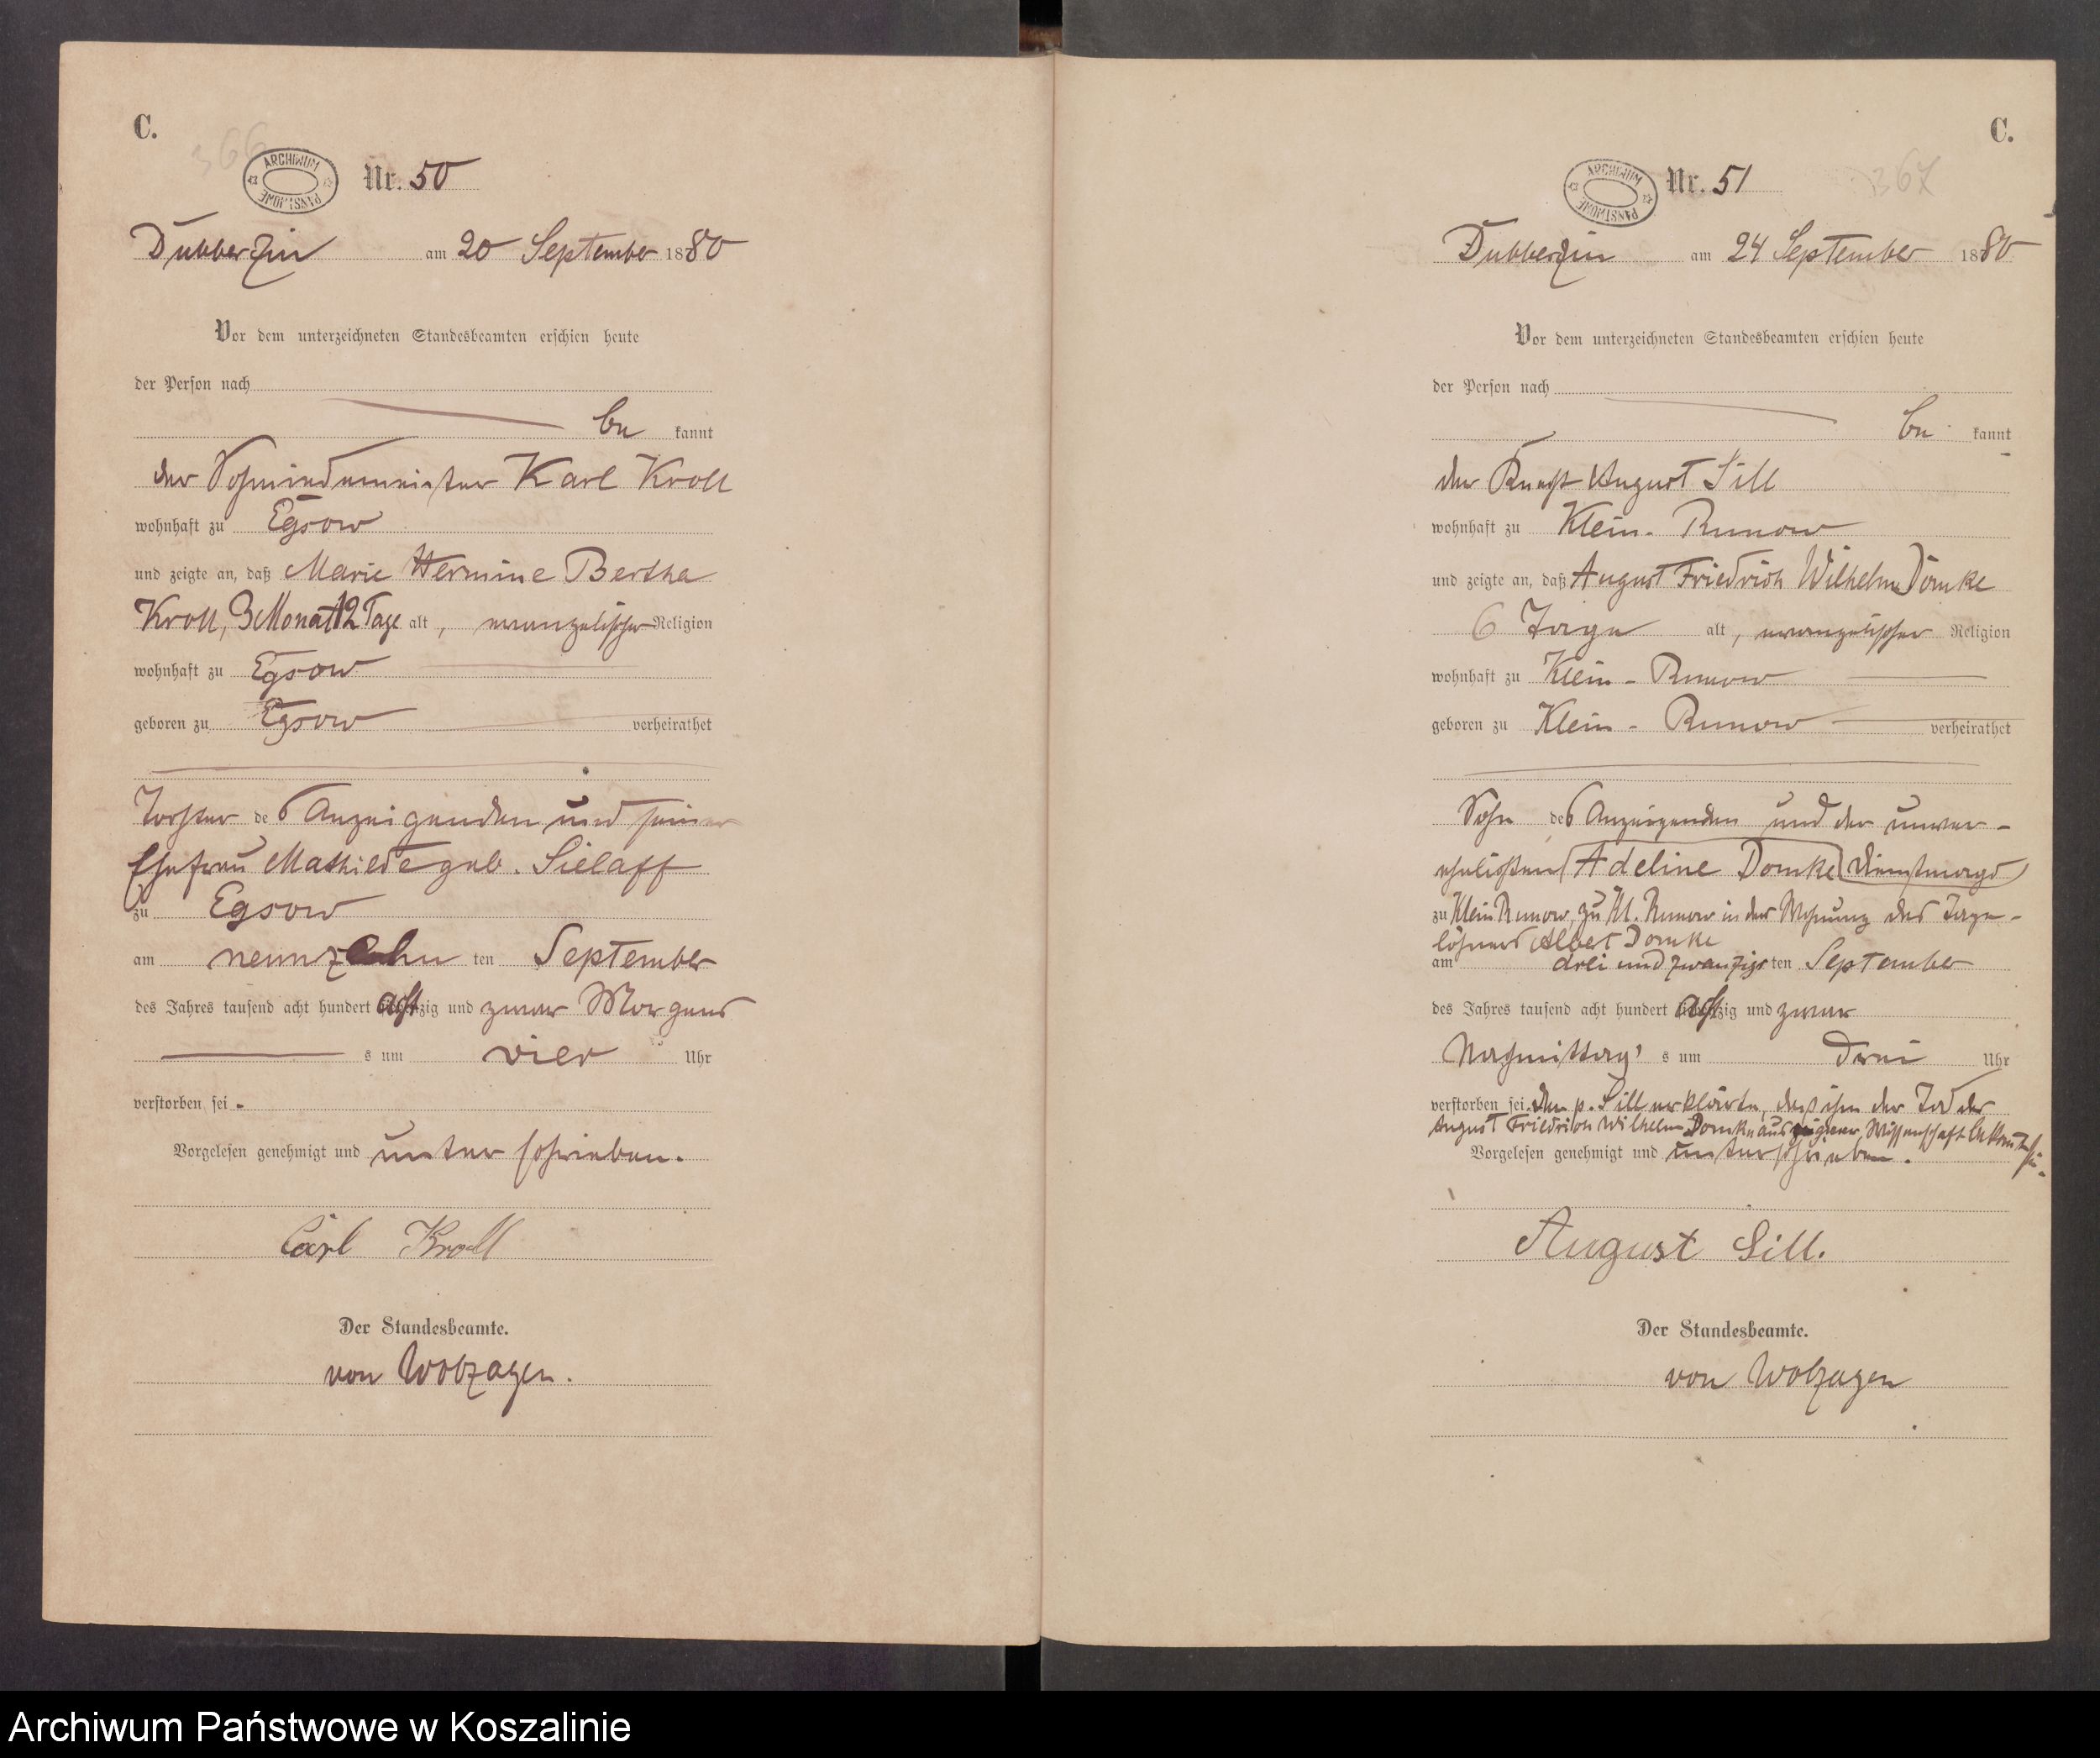 C.
366
ARCHIWUM PAŃSTWOWE
Nr. 50
Dubberzin am 20 September 1880
Vor dem unterzeichneten Standesbeamten erschien heute
der Person nach
be kannt
der Schmiedemeister Karl Kroll
wohnhaft zu Egsow
und zeigte an, daß Marie Hermine Bertha
Kroll, 3 Monat 12 Tage alt, evangelischer Religion
wohnhaft zu Egsow
geboren zu Egsow verheirathet
Tochter des Anzeigenden und seiner
Ehefrau Mathilde geb. Sielaff
zu Egsow
am neunzehn ten September
des Jahres tausend acht hundert achtzig und zwar Morgens
s um vier Uhr
verstorben sei.
Vorgelesen genehmigt und unterschrieben.
Carl Kroll
Der Standesbeamte.
von Wobzagen.
C.
367
ARCHIWUM PAŃSTWOWE
Nr. 51
Dubberzin am 24 September 1880
Vor dem unterzeichneten Standesbeamten erschien heute
der Person nach
be kannt
der Knecht August Sill
wohnhaft zu Klein-Runow
und zeigte an, daß August Friedrich Wilhelm Domke
6 Tage alt, evangelischer Religion
wohnhaft zu Klein-Runow
geboren zu Klein-Runow verheirathet
Sohn des Anzeigenden und der unver-
ehelichten Adeline Domke Dienstmagd
zu Klein Runow, zu Kl. Runow in der Wohnung des Tage-
löhners Albert Domke
am drei und zwanzigs ten September
des Jahres tausend acht hundert achtzig und zwar
Nachmittag's um Drei Uhr
verstorben sei. Der p. Sill erklärte, daß ihm der Tod der
August Friedrich Wilhelm Domke aus eigener Wissenschaft bekannt sei.
Vorgelesen genehmigt und unterschrieben.
August Sill.
Der Standesbeamte.
von Wobzagen
Archiwum Państwowe w Koszalinie